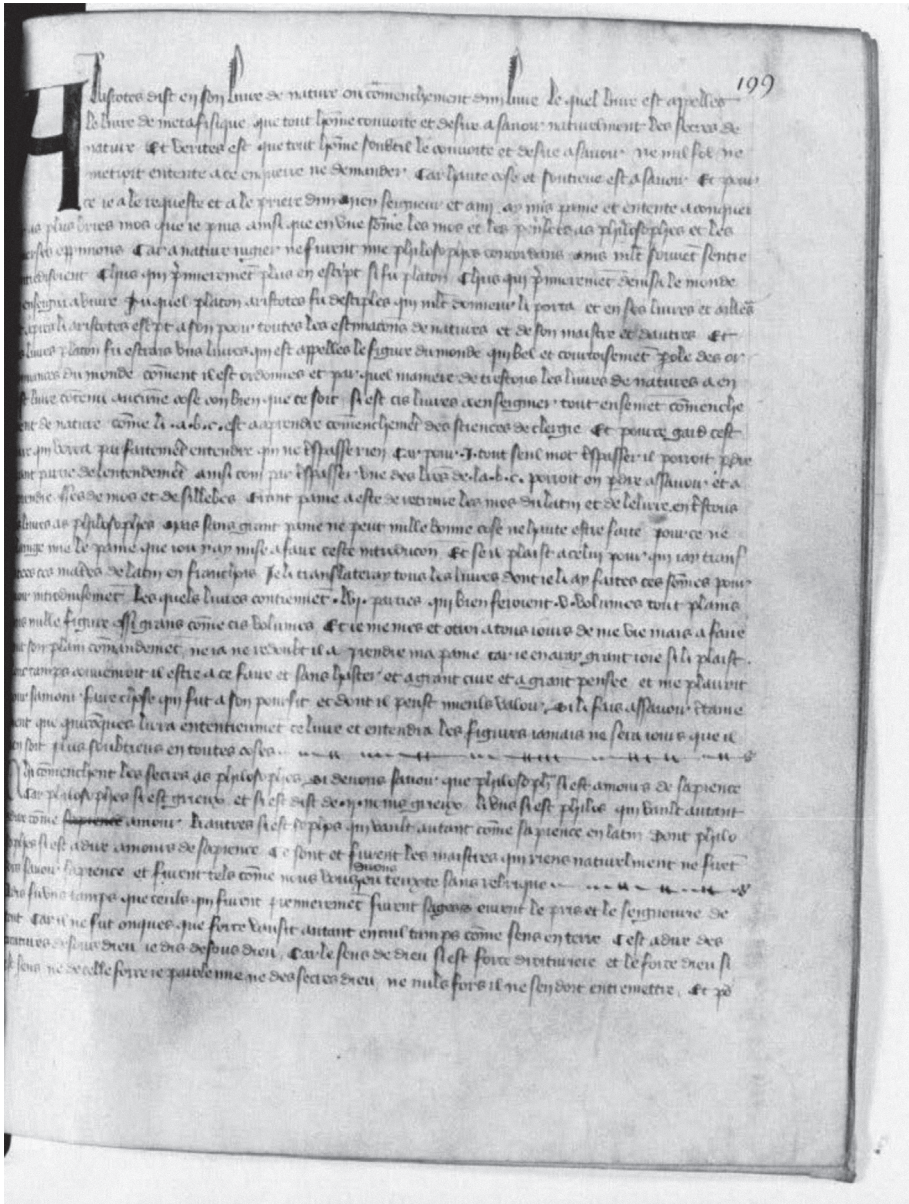 199
Aristotes dist en son livre de nature ou cōmenchement dun livre le quel livre est appelles
le livre de metafisique que tout hōme convoite et desire a savoir naturelment les secres de
nature Et verites est que tout hōme soubtil le convoite et desire a savoir ne nul fol ne
metroit entente a ce enquerre ne demander Car haute cose et soutieve est a savoir Et pour
ce ie a le requeste et a le priere dun mien seigneur et ami ay mis paine et entente a
plus bries mos que ie puis ainsi que en une sōme les mos et les pensees as philosophes et les
opinions Car a nature iugier ne furent mie philosophes concordans mais mlt souvēt sentre
Chius qui p̄mieremēt plus en escript si fu platon Chius qui p̄mieremēt devisa le monde
a Du quel platon aristotes fu desciples qui mlt donneur li porta et en ses livres et ailleurs
aristotes escript a son pooir toutes les estimations de natures et de son maistre et dautres Et
platon fu estrais uns livres qui est appelles le figure du monde qui bel et courtoisemēt pole des or
du monde cōment il est ordennes et par quel maniere de trestous les livres de natures a en
livre contenu aucune cose con bien que ce soit Si est cis livres a enseignier tout ensemēt cōmenche
de nature cōme li .a.b.c. est a aprendre cōmenchemēt des sciences de clergie Et pour ce gard cest
qui vorra parfaitemēt entendre qui ne trespasse rien Car pour .i. tout seul mot trespasser il porroit p̄dre
partie de lentendemēt ainsi com par trespasser une des l̄res de .la.b.c. porroit on p̄dre a savoir et a
de mos et de sillebes Grant paine a este de retraire les mos du latin et de
as philosophes Mais sans grant paine ne peut nulle bonne cose ne haute estre faite pour ce ne
mie le paine que iou y ay mise a faire ceste introducon Et se il plaist a celui pour qui iay transl
ces de latin en franchois Je li translateray tous les livres dont ie li ay faites ces sōmes pour
Les quels livres contienēt .lvi. parties qui bien feroient .v. volumes tout plains
nulle figure grans cōme cis volumes Et ie me mes et otroi a tous iours de me vie mais a faire
son plain cōmandement ne ia ne redoubt il a prendre ma paine car ie en aray grant ioie si li plaist .
tamps convenroit il estre a ce faire et sans haster et a grant cure et a grant pensee et me plairoit
faire chose qui fut a son pourfit et dont il peust mieuls valoir Si li fais assavoir
que quiconques lira ententieumēt ce livre et entendra les figures iamais ne sera iours que il
en soit plus soubtieus en toutes coses
Chi cōmenchent les secres as philosophes Si devons savoir que philosoph̄ si est amours de sapience
Car philosophes si est grieux et si est dist de .ii. noms grieux li uns si est philos qui vault autant
cōme amour li autres si est sophos qui vault autant cōme sapience en latin Dont philo
sophes si est a dire amours de sapience Ce sont et furent les maistres qui riens naturelment ne firēt
savoir sapience et furent tels cōme nous vous dirons ou texte sans rebrique
uns tamps que ceuls qui furent premieremēt furent sages eurent le pris et le seignourie de
Car il ne fut onques que force vausit autant en nul tamps cōme sens en terre Cest a dire des
desous dieu ie dis desous dieu Car le sens de dieu si est force droituriere et le force dieu si
sens ne de celle force ie parole mie ne des secres dieu ne nuls fors il ne sen doit entremettre . Et po